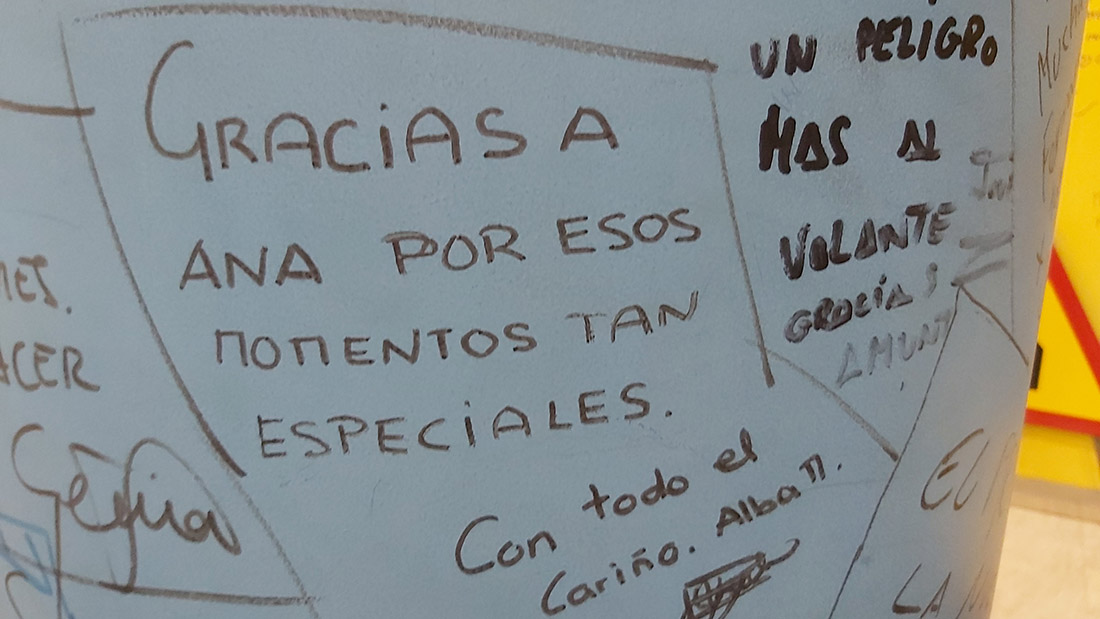 GRACIAS A
ANA POR ESOS
MOMENTOS TAN
ESPECIALES.
Con todo el
Cariño. Alba M.
UN PELIGRO
MAS AL
VOLANTE
GRACIAS
AMUNT
ACER